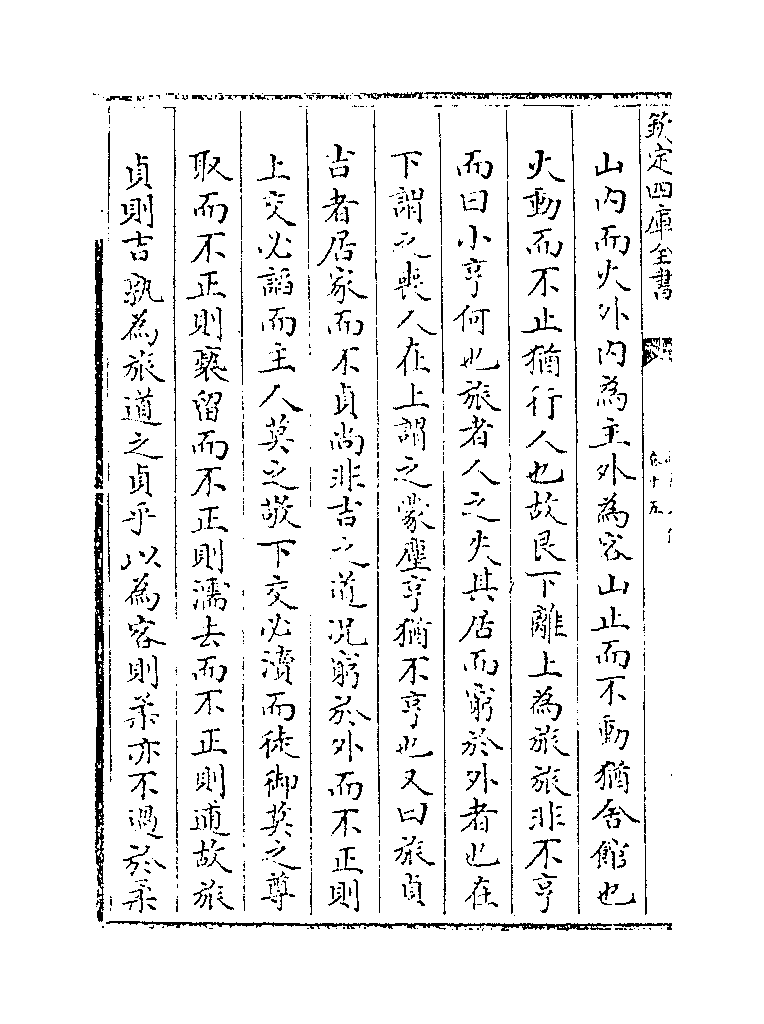 欽定四庫全書
卷十五
山内而火外内為主外為客山止而不動猶舍館也
火動而不止猶行人也故艮下離上為旅旅非不亨
而曰小亨何也旅者人之失其居而窮於外者也在
下謂之喪人在上謂之蒙塵亨猶不亨也又曰旅貞
吉者居家而不貞尚非吉之道况窮於外而不正則
上交必謟而主人莫之敬下交必瀆而徒御莫之尊
取而不正則褻留而不正則濡去而不正則逋故旅
貞則吉孰為旅道之貞乎以為客則柔亦不過於柔